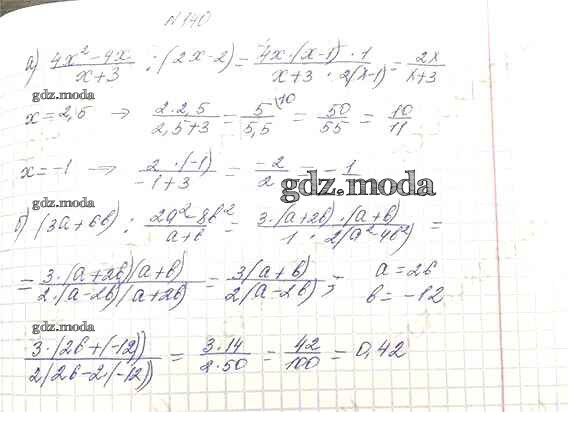 N 140
а) (4x² - 4x)/(x+3) : (2x-2) = (4x·(x-1)·1)/(x+3·2(x-1)) = 2x/(x+3)
gdz.moda
x = 2,5 → (2·2,5)/(2,5+3) = 5/5,5 \10 = 50/55 = 10/11
x = -1 → (2·(-1))/(-1+3) = -2/2 = -1
gdz.moda
gdz.moda
б) (3a+6b) : (2a²-8b²)/(a+b) = (3·(a+2b)·(a+b))/(1·2(a²-4b²) =
= (3·(a+2b)(a+b))/(2·(a-2b)(a+2b)) = (3(a+b))/(2(a-2b)) ; a = 26
b = -12
gdz.moda
(3·(26+(-12))/(2(26-2·(-12)) = (3·14)/(2·50) = 42/100 = 0,42